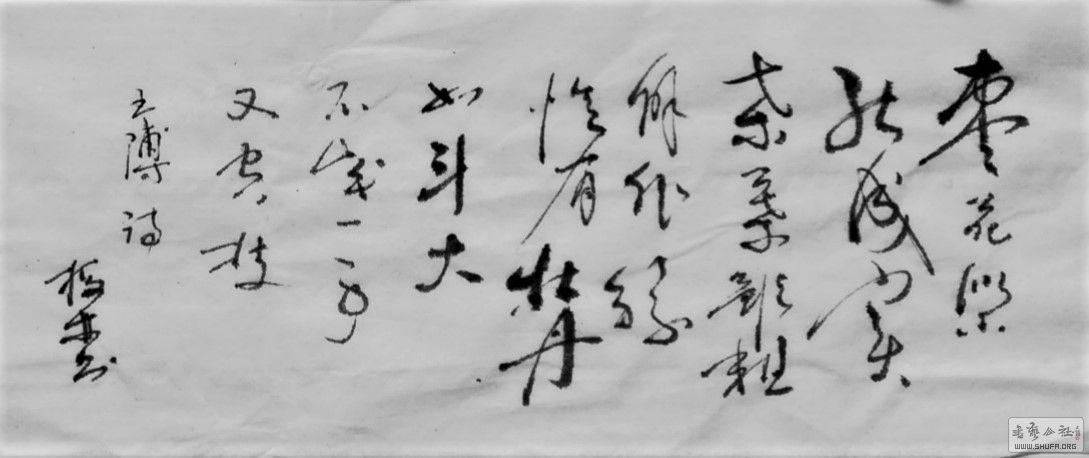 枣花雖小
能成實
桑葉雖粗
解作絲
惟有牡丹
如斗大
不成一事
又空枝
王溥詩
书
書藝公社
WWW.SHUFA.ORG